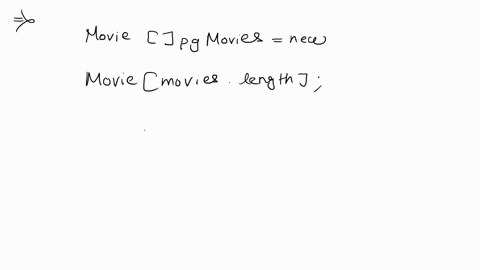 ⇒ Movie [] pgMovies = new
Movie [movies.length];